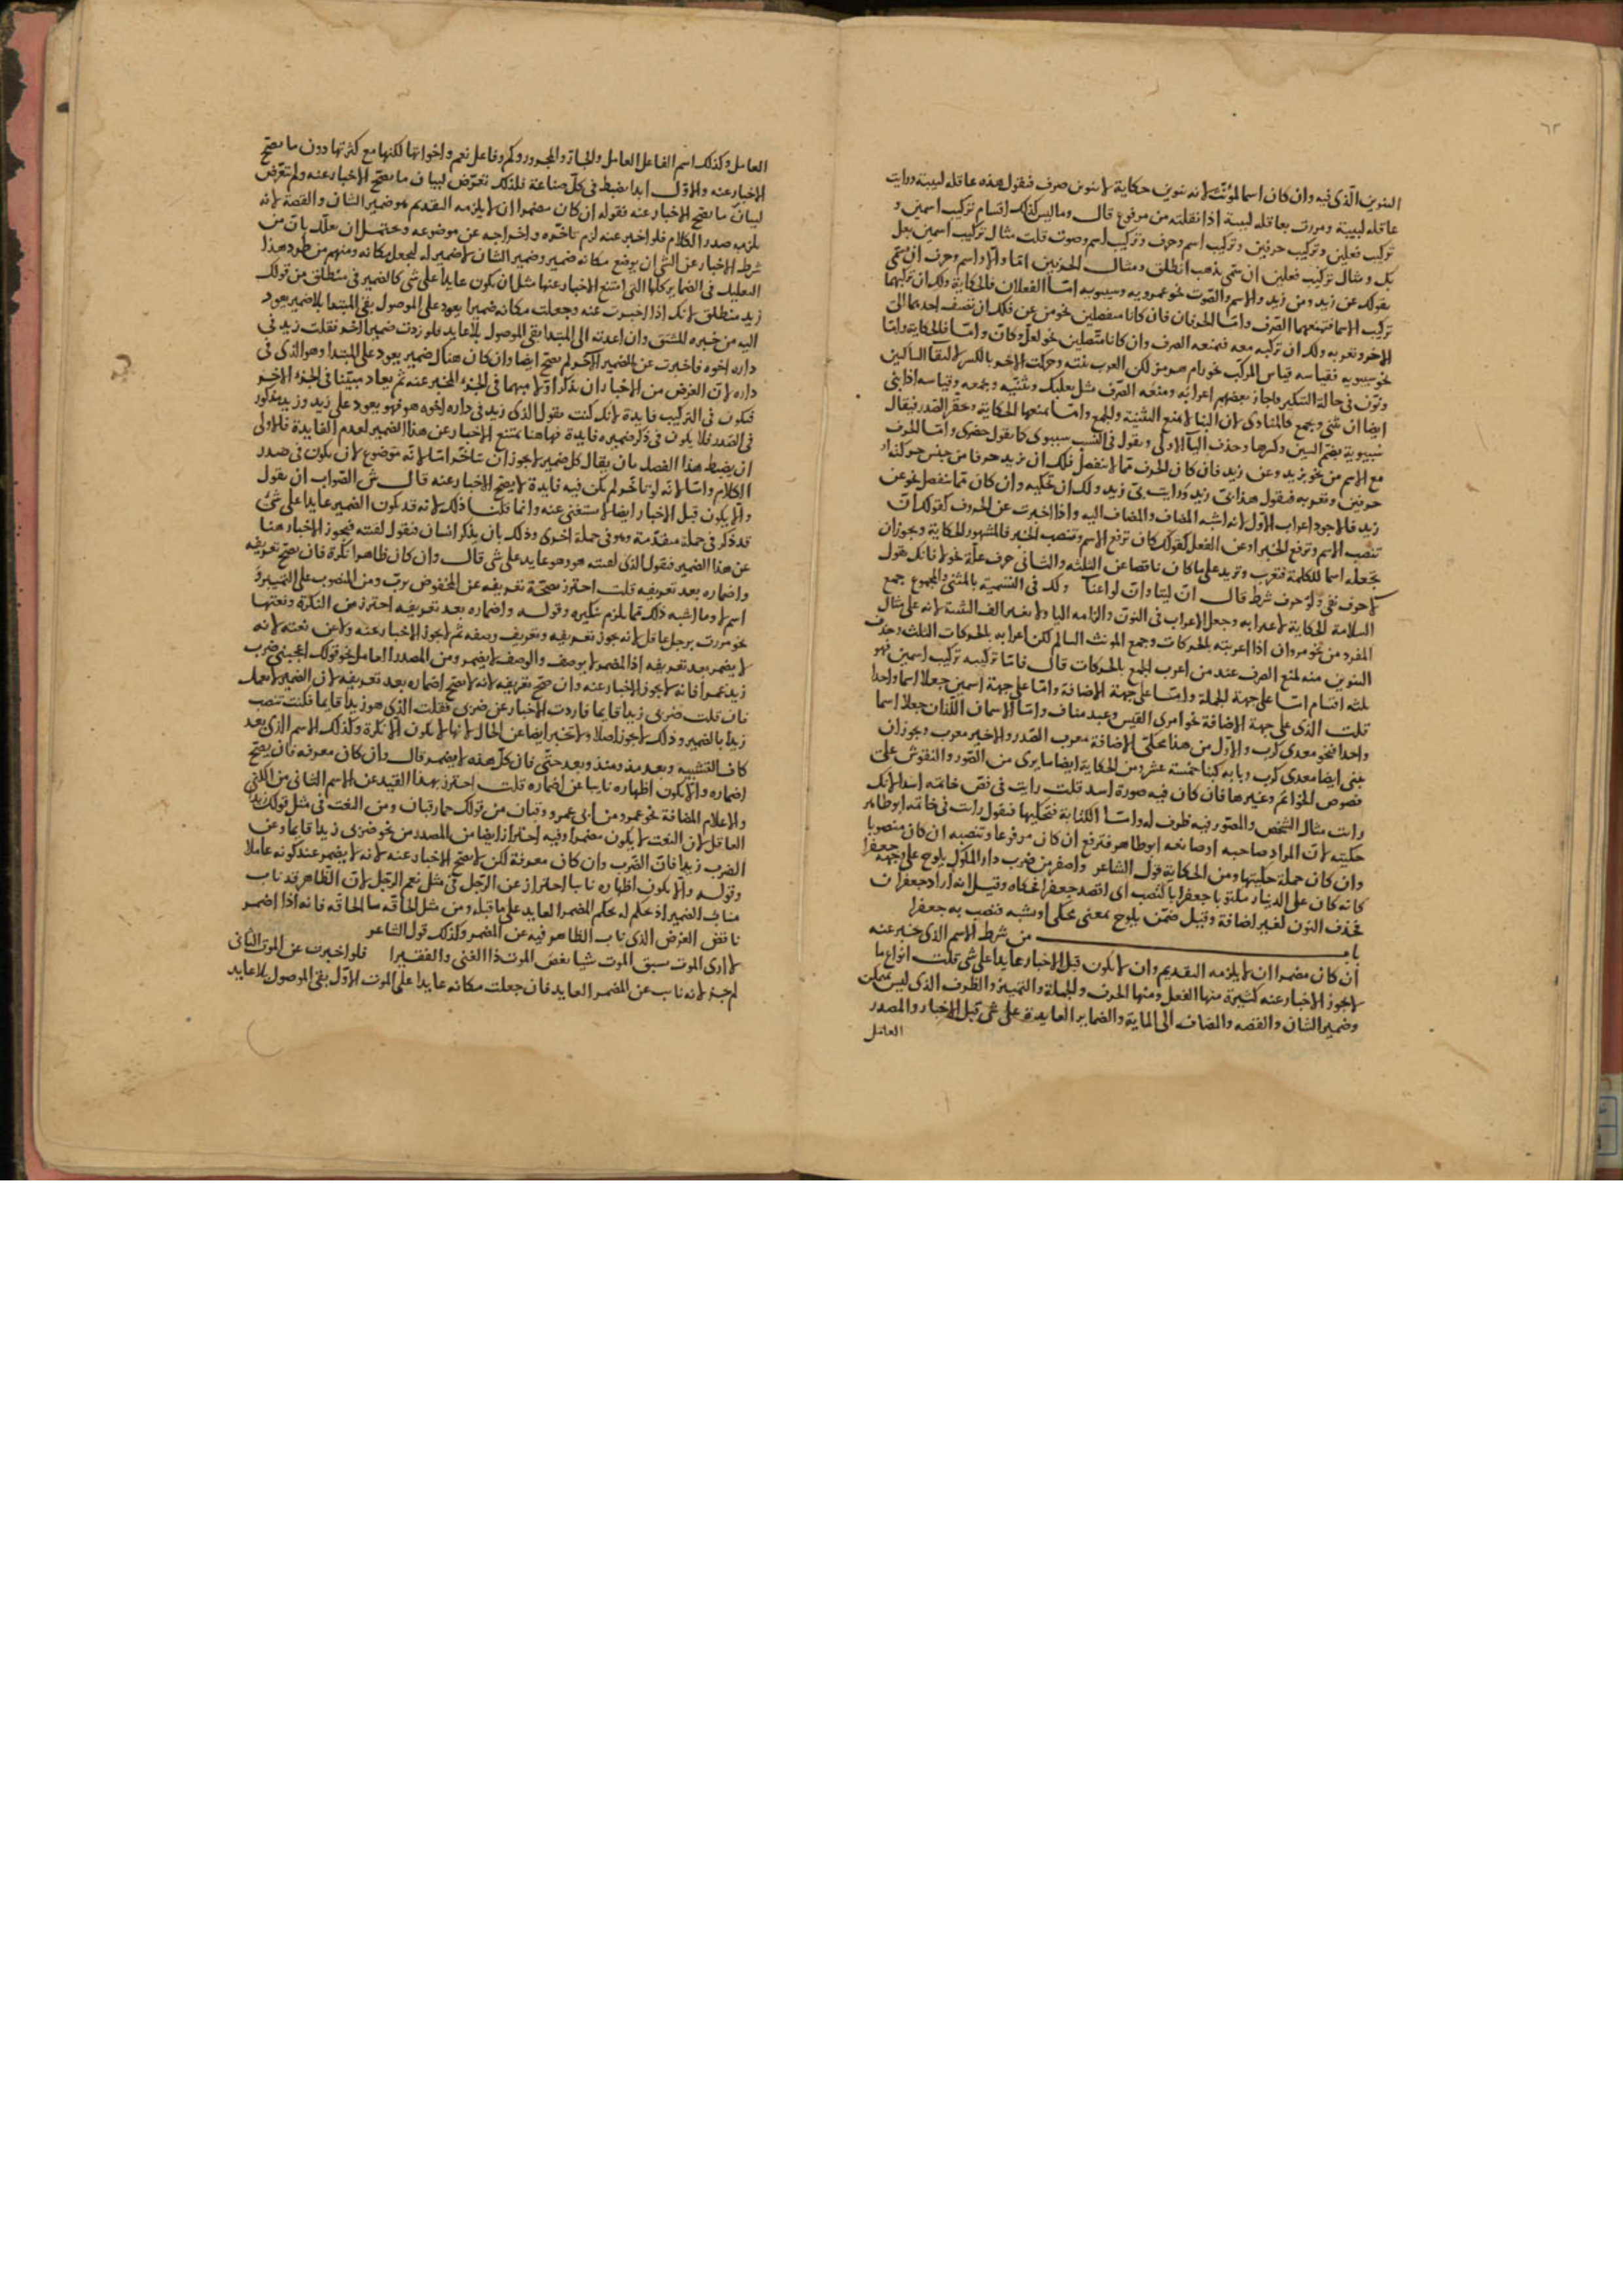 ٦٢
التنوين الذى فيه وان كان اسما لمؤنث لانه تنوين حكاية لا تنوين صرف فتقول هذه عاقلة لبيبة ورايت
عاقلة لبيبة ومررت بعاقلة لبيبة اذا نقلته من مرفوع قال وما ليس كذلك اقسام تركيب اسمين و
تركيب فعلين وتركيب حرفين وتركيب اسم وحرف وتركيب اسم وصوت قلت مثال تركيب اسمين بعل
بك ومثال تركيب فعلين ان تسمى بذهب انطلق ومثال الحرفين اما والا واسم وحرف ان تسمى
بقولك عن زيد ومن زيد والاسم والصوت نحو عمرويه وسيبويه اما الفعلان فالحكاية ولك ان تركبهما
تركيب الاسما فتمنعهما الصرف واما الحرفان فان كانا منفصلين نحو من عن فلك ان تضف احدهما الى
الاخر وتعربه ولك ان تركبه معه فتمنعه الصرف وان كانا متصلين نحو لعل وكان واما فالحكاية واما
نحو سيبويه فقياسه قياس المركب نحو رام هرمز لكن العرب بنته وحركت الاخر بالكسر لالتقا الساكنين
ونون فى حالة التنكير واجاز بعضهم اعرابه ومنعه الصرف مثل بعلبك وتثنيه وجمعه وقياسه اذا بنى
ايضا ان يثنى ويجمع فالمنادى لان البنا لا يمنع التثنية والجمع وانما تمنعها الحكاية وحقر الصدر فيقال
سيبويه بضم السين وكسرها وحذف اليآ الاولى وتقول فى النسب سيبوى كما تقول حضرى واما الحرف
مع الاسم من نحو بزيد وعن زيد فان كان الحرف مما لا ينفصل فلك ان تزيد حرفا من جنس حركته او
حرفين وتعربه فتقول هذا بى زيد ورايت بى زيد ولك ان تحكيه وان كان مما ينفصل نحو عن
زيد فالاجود اعراب الاول لانه اشبه المضاف والمضاف اليه واذا اخبرت عن الحروف كقولك ان
تنصب الاسم وترفع الخبر او عن الفعل كقولك كان ترفع الاسم وتنصب الخبر فالمشهور الحكاية ويجوز ان
تجعله اسما للكلمة فتعرب وتزيد على ما كان ناقصا عن الثلثة والثانى حرف علة نحو لا فانك تقول
لا حرف نفى ولو حرف شرط قال ان ليتا وان لوا عنا ولك فى التسمية بالمثنى والمجموع جمع
السلامة الحكاية لاعرابه وجعل الاعراب فى النون والزامه اليا ولا تغير الف التثنية لانه على مثال
المفرد من نحو مروان اذا اعربته بالحركات وجمع المونث السالم لكن اعرابه بالحركات الثلث وحذف
التنوين منه لمنع الصرف عند من اعرب الجمع بالحركات قال فاما تركيبه تركيب اسمين فهو
ثلثة اقسام اما على جهة الجملة واما على جهة الاضافة واما على جهة اسمين جعلا اسما واحدا
قلت الذى على جهة الاضافة نحو امرى القيس وعبد مناف واما الاسمان اللذان جعلا اسما
واحدا فنحو معدى كرب والاول من هذا محكى الاضافة معرب الصدر والاخير معرب ويجوز ان
يبنى ايضا معدى كرب وبابه كبنا خمسة عشر ومن الحكاية ايضا ما يرى من الصور والنقوش على
فصوص الخواتم وغيرها فان كان فيه صورة اسد قلت رايت فى فص خاتمه اسدا لانك
رايت مثال الشخص والمصور فيه ظرف له واما الكتابة فتحكيها فتقول رايت فى خاتمه ابو طاهر
حكيته لان المراد صاحبه او صانعه ابو طاهر فترفع ان كان مرفوعا وتنصبه ان كان منصوبا
وان كان جملة حكيتها ومن الحكاية قول الشاعر واصفر من ضرب دار الملوك يلوح على وجهه جعفرا
كانه كان على الدينار مكتوبا جعفرا بالنصب اى اقصد جعفرا فحكاه وقيل انه اراد جعفران
فحذف النون لغير اضافة وقيل ضمن يلوح بمعنى يحكى او شبه فنصب به جعفرا
باب من شرط الاسم الذى يخبر عنه
ان كان مضمرا ان لا يلزمه التقديم وان لا يكون قبل الاخبار عايدا على شى قلت انواع ما
لا يجوز الاخبار عنه كثيرة منها الفعل ومنها الحرف والجملة والتمييز والظرف الذى ليس بمتمكن
وضمير الشان والقصه والمضاف الى الماية والضماير العايدة على شى قبل الاخبار والمصدر
العامل
العامل وكذلك اسم الفاعل العامل والجار والمجرور وكم وفاعل نعم واخواتها لكنها مع كثرتها دون ما يصح
الاخبار عنه والاول ابدا يضبط فى كل صناعة فلذلك تعرض لبيان ما يصح الاخبار عنه ولم يتعرض
لبيان ما يصح الاخبار عنه فقوله ان كان مضمرا ان لا يلزمه التقديم هو ضمير الشان والقصة لانه
يلزمه صدر الكلام فلو اخبر عنه لزم تاخره واخراجه عن موضوعه ويحتمل ان يعلل بان من
شرط الاخبار عن الشى ان يوضع مكانه ضمير وضمير الشان لا ضمير له ليجعل مكانه ومنهم من طرد هذا
التعليل فى الضماير كلها التى امتنع الاخبار عنها مثل ان يكون عايدا على شى كالضمير فى منطلق من قولك
زيد منطلق لانك اذا اخبرت عنه وجعلت مكانه ضميرا يعود على الموصول بقى المبتدا بلا ضمير يعود
اليه من خبره المشتق وان اعدته الى المبتدا بقى الموصول بلا عايد فلو زدت ضميرا اخر فقلت زيد فى
داره اخوه فاخبرت عن الضمير الاخر لم يصح ايضا وان كان هناك ضمير يعود على المبتدا وهو الذى فى
داره لان الغرض من الاخبار ان يذكر اولا مبهما فى الجزء المخبر عنه ثم يعاد مبينا فى الجزء الاخر
فتكون فى التركيب فايدة لانك كنت تقول الذى زيد فى داره اخوه هو فهو يعود على زيد وزيد مذكور
فى الصدر فلا يكون فى ذكر ضميره فايدة فهاهنا يمتنع الاخبار عن هذا الضمير لعدم الفايدة فالاولى
ان يضبط هذا الفصل بان يقال كل ضمير لا يجوز ان يتاخر اما لانه موضوع لان يكون فى صدر
الكلام واما لانه لو تاخر لم يكن فيه فايدة لا يصح الاخبار عنه قال ش الصواب ان يقول
والا يكون قبل الاخبار ايضا لا يستغنى عنه وانما قلنا ذلك لانه قد يكون الضمير عايدا على شى
قد ذكر فى جملة متقدمة وهو فى جملة اخرى وذلك بان يذكر انسان فتقول لقيته فيجوز الاخبار هنا
عن هذا الضمير فتقول الذى لقيته هو وهو عايد على شى قال وان كان ظاهرا نكرة فان يصح تعريفه
واضماره بعد تعريفه قلت احترز بصحة تعريفه عن المخفوض برب ومن المنصوب على التمييز و
اسم لا وما اشبه ذلك مما يلزم تنكيره وقوله واضماره بعد تعريفه احترز من النكرة ونعتها
نحو مررت برجل عاقل لانه يجوز تعريفه وتعريف وصفه ثم لا يجوز الاخبار عنه ولا عن نعته لانه
لا يضمر بعد تعريفه اذ المضمر لا يوصف والوصف لا يضمر ومن المصدر العامل نحو قولك اعجبنى ضرب
زيد عمرا فانه لا يجوز الاخبار عنه وان صح تعريفه لانه لا يصح اضماره بعد تعريفه لان الضمير لا يعمل
فان قلت ضربى زيدا قايما فاردت الاخبار عن ضربى فقلت الذى هو زيدا قايما فكنت تنصب
زيدا بالضمير وذلك لا يجوز اصلا ولا تخبر ايضا عن الحال لانها لا يكون الا نكرة وكذلك الاسم الذى بعد
كاف التشبيه وبعد مذ ومنذ وبعد حتى فان كل هذه لا يضمر قال وان كان معرفه فان يصح
اضماره والا يكون اظهاره نايبا عن اضماره قلت احترز بهذا القيد عن الاسم الثانى من الكنى
والاعلام المضافة نحو عمرو من ابى عمرو وقبان من قولك حمار قبان ومن النعت فى مثل قولك زيد
العاقل لان النعت لا يكون مضمرا وفيه احتراز ايضا من المصدر من نحو ضربى زيدا قايما وعن
الضرب زيدا فان الضرب وان كان معرفة لكن لا يصح الاخبار عنه لانه لا يضمر عند كونه عاملا
وقوله والا يكون اظهاره نايبا احتراز عن الرجل فى مثل نعم الرجل لان الظاهر قد ناب
مناب الضمير اذ حكم له بحكم المضمر العايد على ما قبله ومن مثل الحاقه ما الحاقه فانه اذا اضمر
ناقض الغرض الذى ناب الظاهر فيه عن المضمر وكذلك قول الشاعر
لا ارى الموت يسبق الموت شيا نغص الموت ذا الغنى والفقيرا فلو اخبرت عن الموت الثانى
لم يجز لانه ناب عن المضمر العايد فان جعلت مكانه عايدا على الموت الاول بقى الموصول بلا عايد